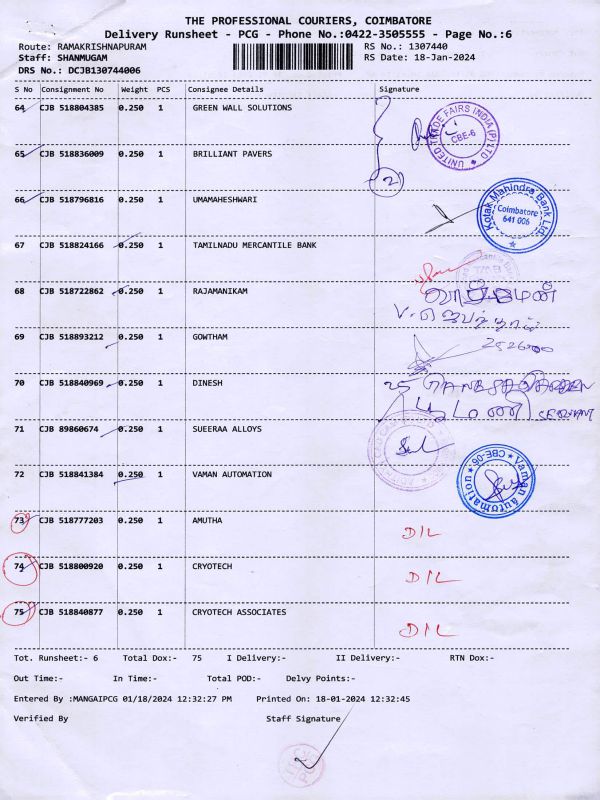 THE PROFESSIONAL COURIERS, COIMBATORE
Delivery Runsheet - PCG - Phone No.:0422-3505555 - Page No.:6
Route: RAMAKRISHNAPURAM RS No.: 1307440
Staff: SHANMUGAM RS Date: 18-Jan-2024
DRS No.: DCJB130744006
S No Consignment No Weight PCS Consignee Details Signature
64 CJB 518804385 0.250 1 GREEN WALL SOLUTIONS
UNITED TRADE FAIRS INDIA (P) LTD CBE-6
65 CJB 518836009 0.250 1 BRILLIANT PAVERS
2
66 CJB 518796816 0.250 1 UMAMAHESHWARI
Kotak Mahindra Bank Ltd. Coimbatore 641 006
67 CJB 518824166 0.250 1 TAMILNADU MERCANTILE BANK
68 CJB 518722862 0.250 1 RAJAMANIKAM
69 CJB 518893212 0.250 1 GOWTHAM
70 CJB 518840969 0.250 1 DINESH
25 GANESA GARDEN
71 CJB 89860674 0.250 1 SUEERAA ALLOYS
72 CJB 518841384 0.250 1 VAMAN AUTOMATION
Vaman automation CBE-06
73 CJB 518777203 0.250 1 AMUTHA D/L
74 CJB 518800920 0.250 1 CRYOTECH D/L
75 CJB 518840877 0.250 1 CRYOTECH ASSOCIATES D/L
Tot. Runsheet:- 6 Total Dox:- 75 I Delivery:- II Delivery:- RTN Dox:-
Out Time:- In Time:- Total POD:- Delvy Points:-
Entered By :MANGAIPCG 01/18/2024 12:32:27 PM Printed On: 18-01-2024 12:32:45
Verified By Staff Signature